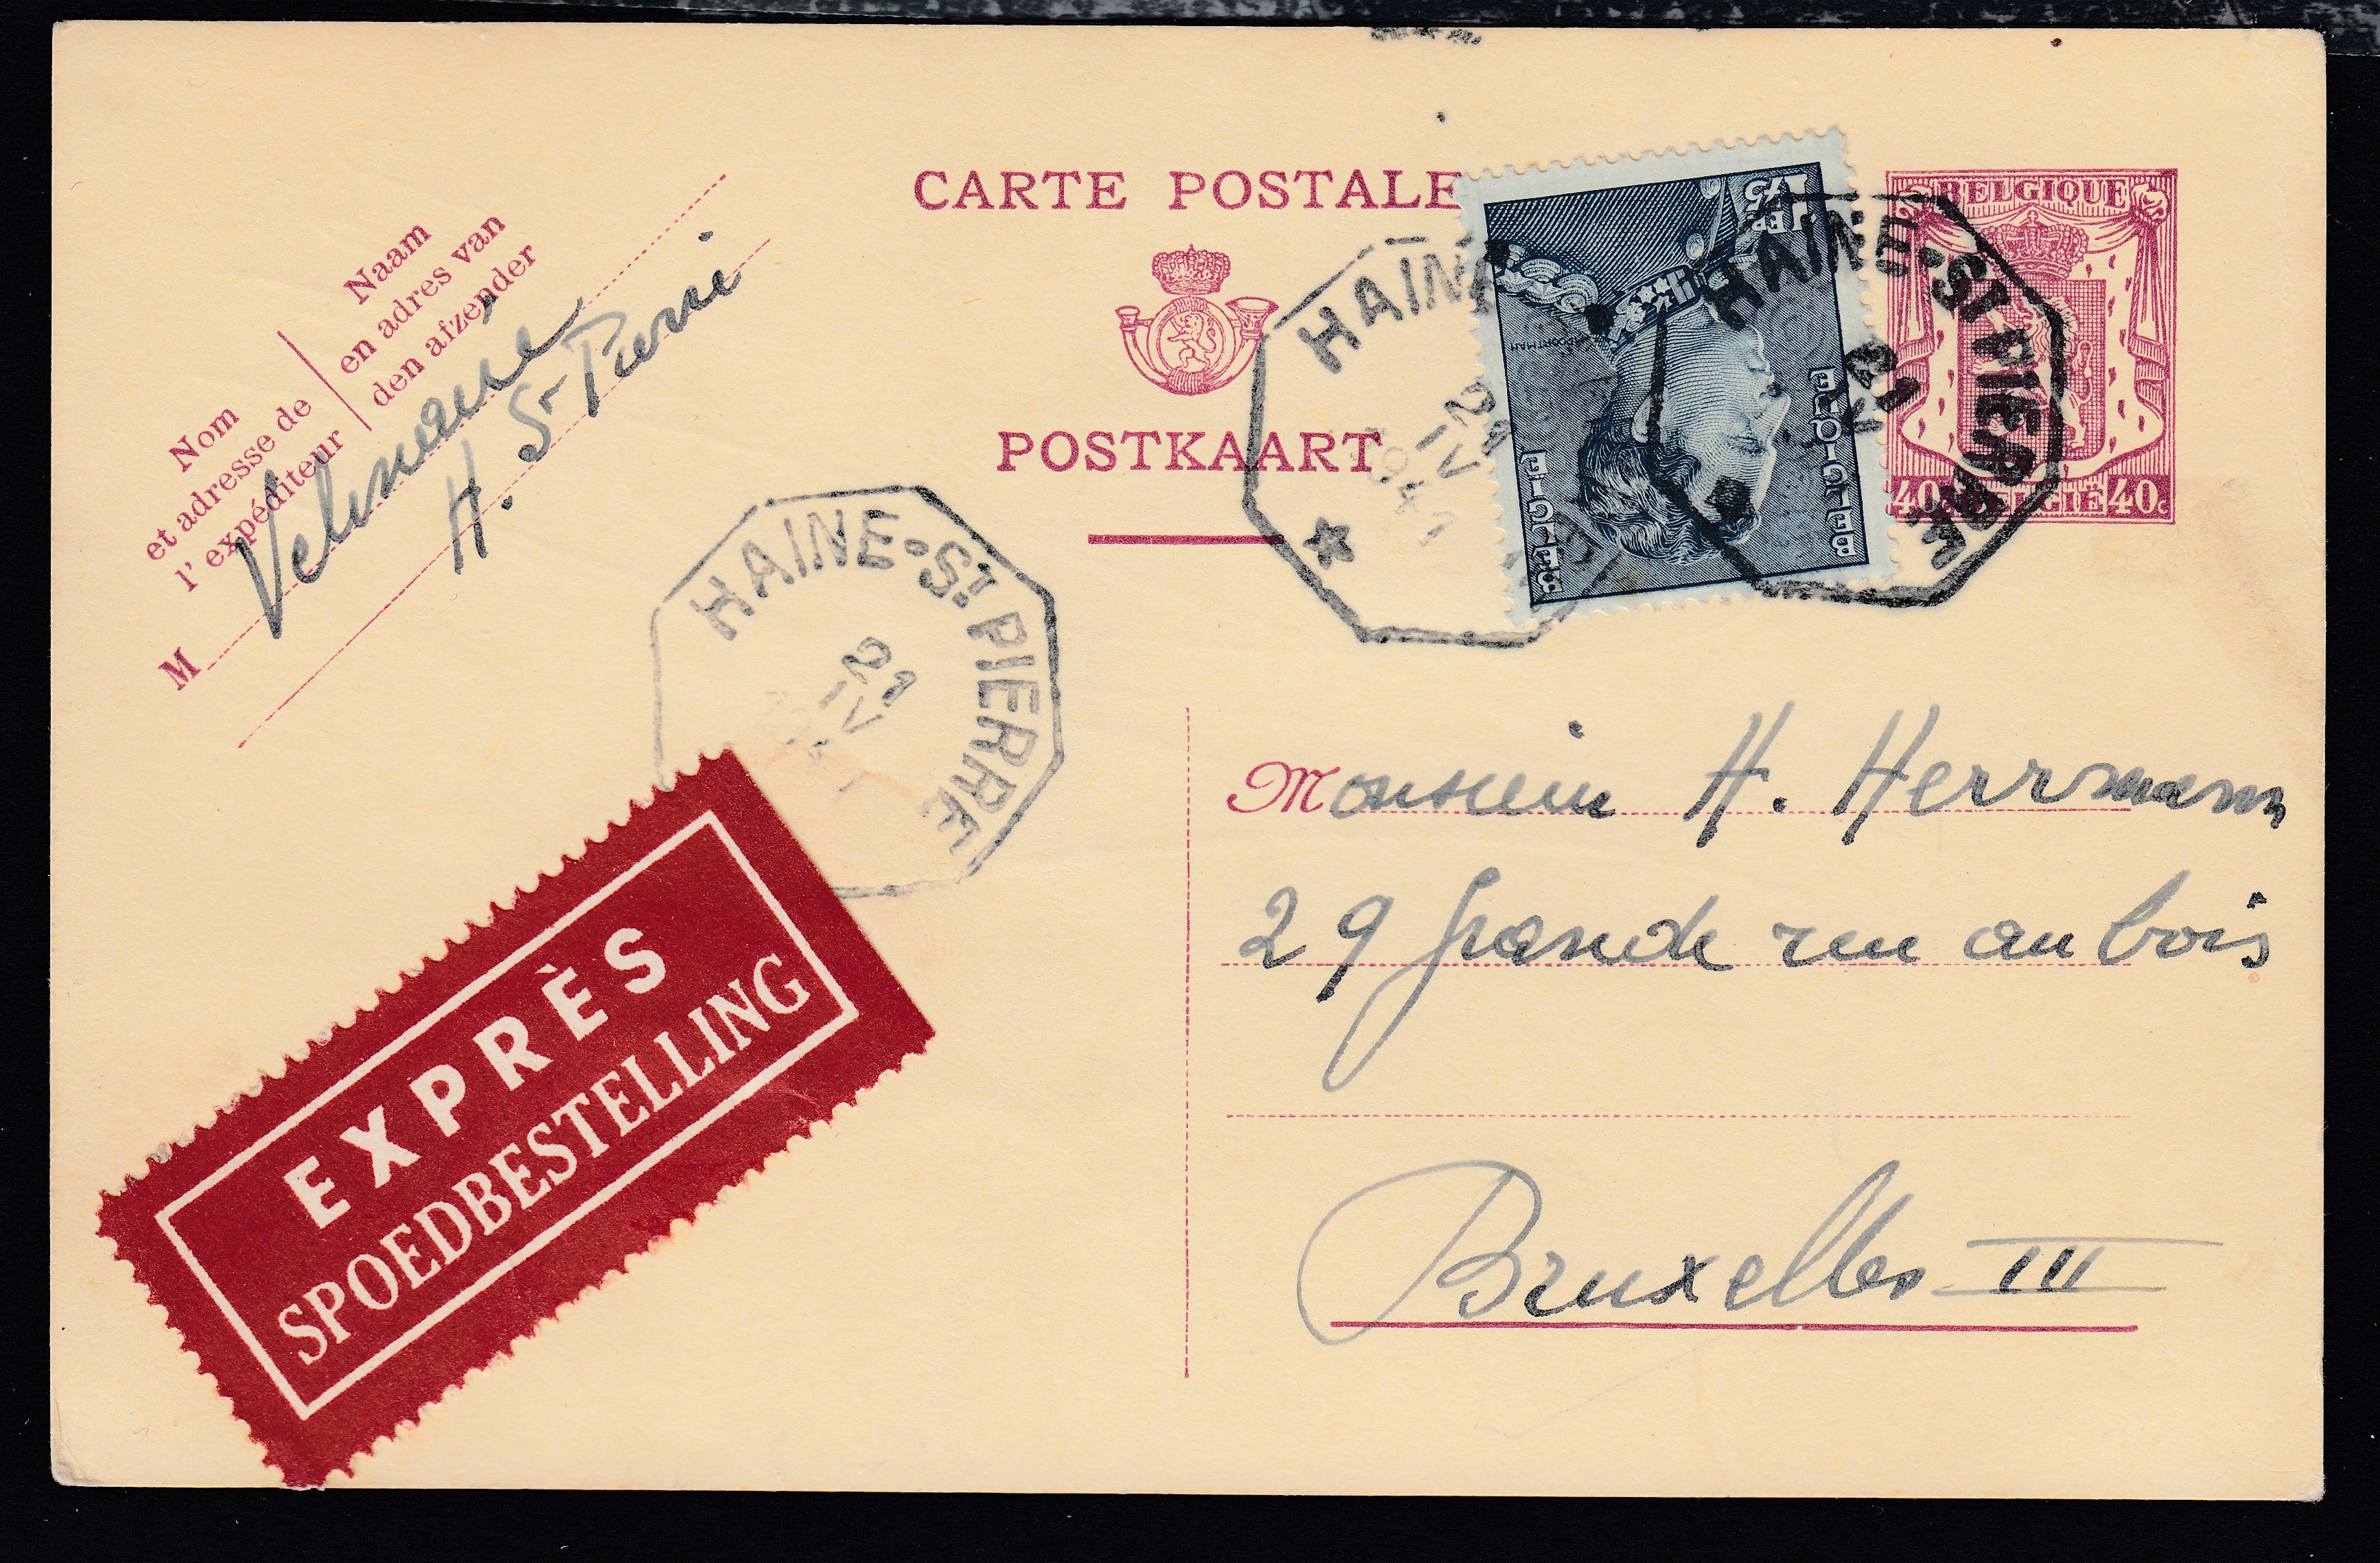 CARTE POSTALE
POSTKAART
Naam
en adres van
den afzender
Nom
et adresse de
l'expéditeur
M
H. St Pierre
1FR75
BELGIQUE
BELGIE
BELGIQUE
40c BELGIË 40c
HAINE
21
IV
1941
HAINE-ST PIERRE
21
HAINE-ST PIERRE
21
IV
Monsieur H. Herrmann
29 grande rue au bois
Bruxelles III
EXPRÈS
SPOEDBESTELLING